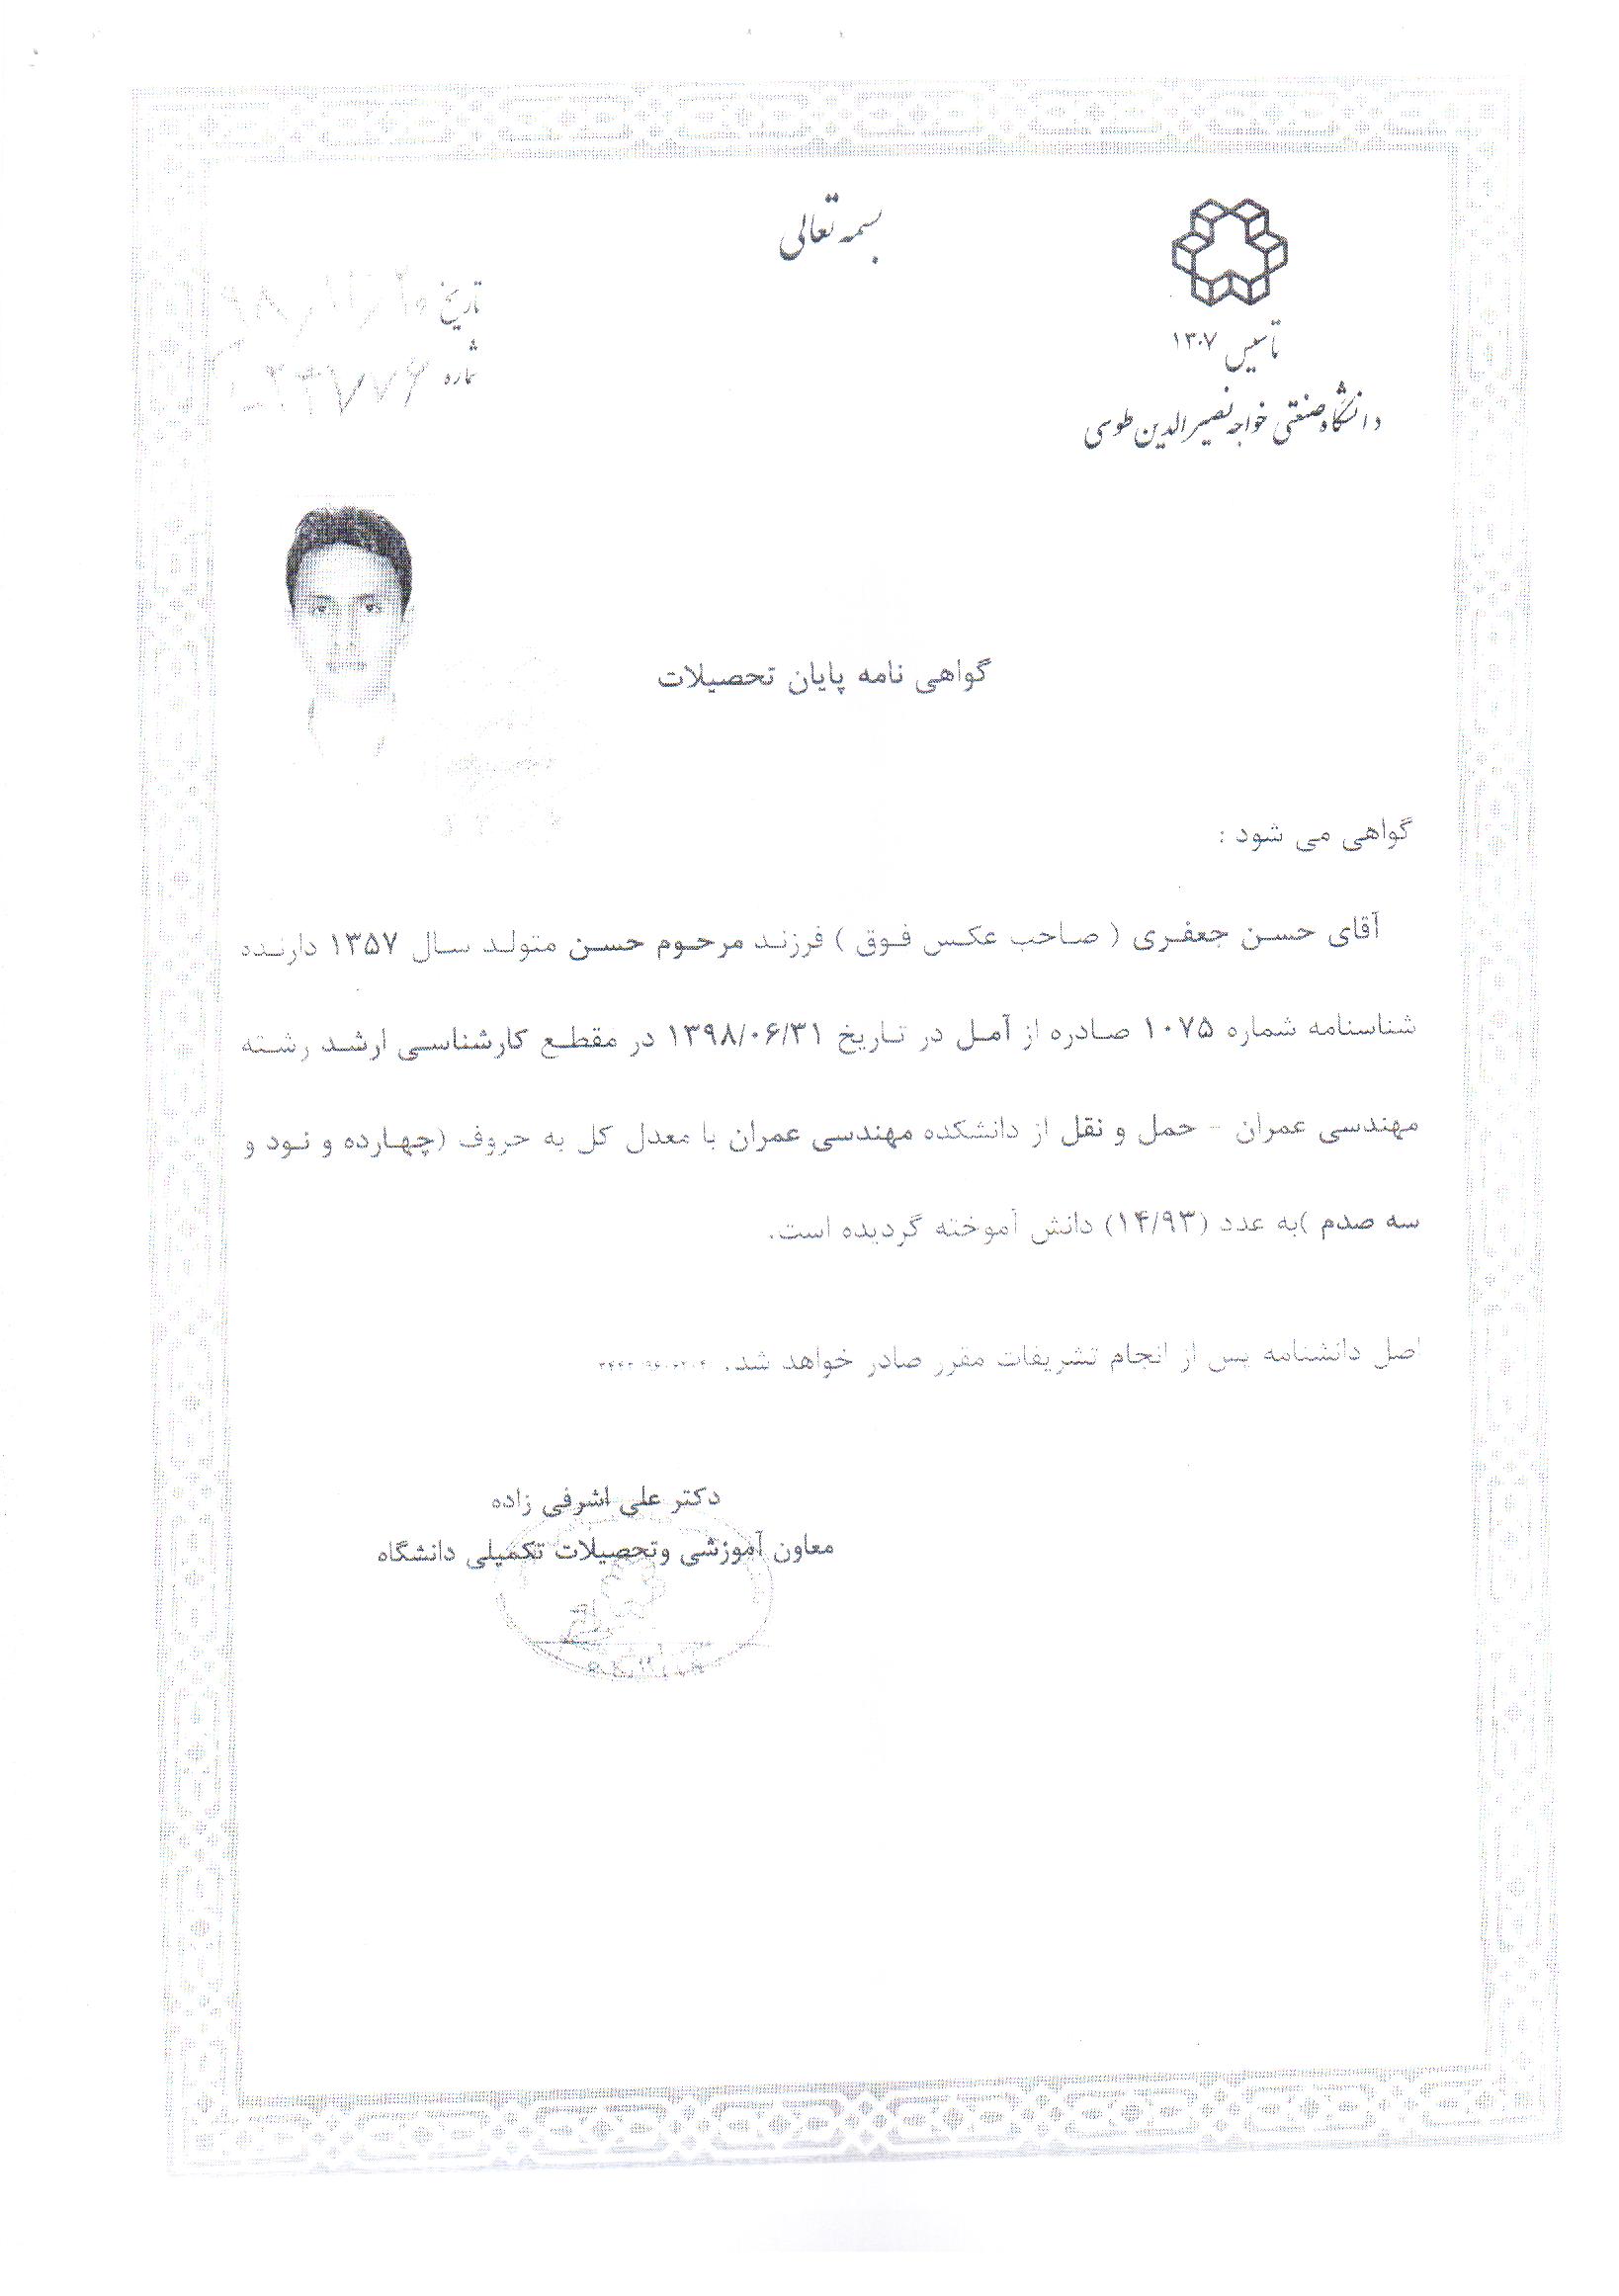 بسمه تعالی
تاسیس ۱۳۰۷
دانشگاه صنعتی خواجه نصیرالدین طوسی
تاریخ
شماره
گواهی نامه پایان تحصیلات
گواهی می شود :
آقای حسن جعفری ( صاحب عکس فوق ) فرزند مرحوم حسن متولد سال ۱۳۵۷ دارنده
شناسنامه شماره ۱۰۷۵ صادره از آمل در تاریخ ۱۳۹۸/۰۶/۳۱ در مقطع کارشناسی ارشد رشته
مهندسی عمران - حمل و نقل از دانشکده مهندسی عمران با معدل کل به حروف (چهارده و نود و
سه صدم )به عدد (۱۴/۹۳) دانش آموخته گردیده است.
اصل دانشنامه پس از انجام تشریفات مقرر صادر خواهد شد.
دکتر علی اشرفی زاده
معاون آموزشی وتحصیلات تکمیلی دانشگاه